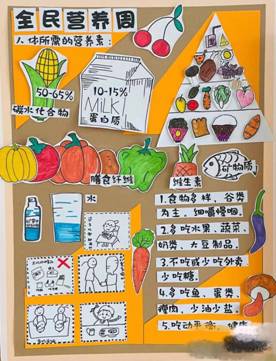 全民营养周
人体所需的营养素:
50-65%
碳水化合物
10-15%
MILK
蛋白质
膳食纤维
维生素
矿物质
水
1.食物多样,谷类
为主,细嚼慢咽。
2.多吃水果、蔬菜
奶类、大豆制品。
3.不吃或少吃外卖
少吃糖。
4.多吃鱼、蛋类、
瘦肉,少油少盐。
5.吃动平衡,健康